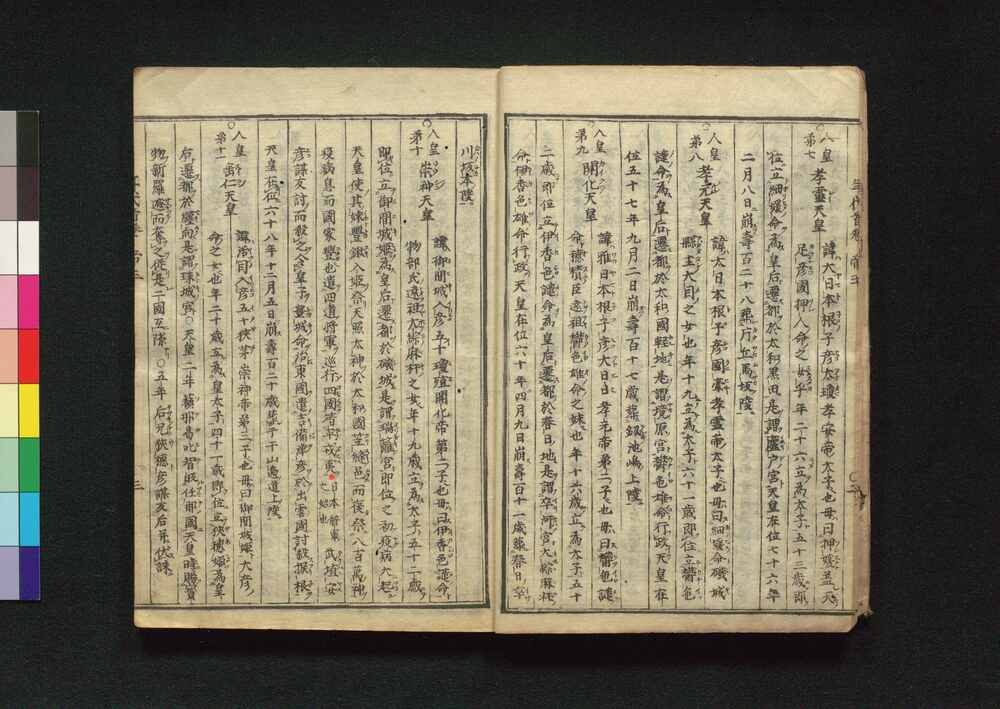 人皇第七 孝靈天皇 諱大日本根子彦太瓊孝安帝太子也毋曰押媛蓋天
足彦國押人命之女乎年二十六立為太子五十三歳即
位立細媛命為皇后遷都於太和黒田是謂廬戸宮天皇在位七十六年
二月八日崩壽百二十八葬片丘馬坂陵
人皇第八 孝元天皇 諱太日本根子彦國牽孝靈帝太子也毋曰細媛命磯城
縣主大目之女也年十九立為太子六十一歳即位立欝色
謎命為皇后遷都於太和國軽地是謂境原宮欝色雄命行政天皇在
位五十七年九月二日崩壽百十七歳葬剱池嶋上陵
人皇第九 開化天皇 諱雅日本根子彦大日日孝元帝第二子也毋曰欝色謎
命穂積臣遠祖欝色雄命之妹也年十六歳立為太子五十
一歳即位立伊香色謎命為皇后遷都於春日地是謂率河宮大綜麻杵
命伊香色雄命行政天皇在位六十年四月九日崩壽百十一歳葬春日率
川坂本陵
人皇第十 崇神天皇 諱御間城入彦五十瓊殖開化帝第二子也毋曰伊香色謎命
物部氏遠祖大綜麻杵之女年十九歳立為太子五十二歳
即位立御間城姫為皇后遷都於磯城是謂瑞籬宮即位之初疫病大起
天皇使其妹豐鍬入姫祭天照太神於太和國笠縫邑而後祭八百萬神
疫病息而國家豐也遣四道將軍巡行四國皆平戎夷 日本將軍之始也 武埴安
彦謀反討而殺之令皇子豐城命治東國遣吉備津彦於出雲國討殺振根
天皇在位六十八年十二月五日崩壽百二十歳葬于山邉道上陵
人皇第十一 垂仁天皇 諱活目入彦五十狹茅崇神帝第三子也毋曰御間城姫大彦
命之女也年二十四歳立為皇太子四十一歳即位立狹穂姫為皇
后遷都於纏向是謂珠城宮天皇二年蘓那曷叱智皈任那國天皇賜寶
物新羅遮而奪之従是二國互隙〇五年后兄狹穂彦謀反后兄伏誅
三